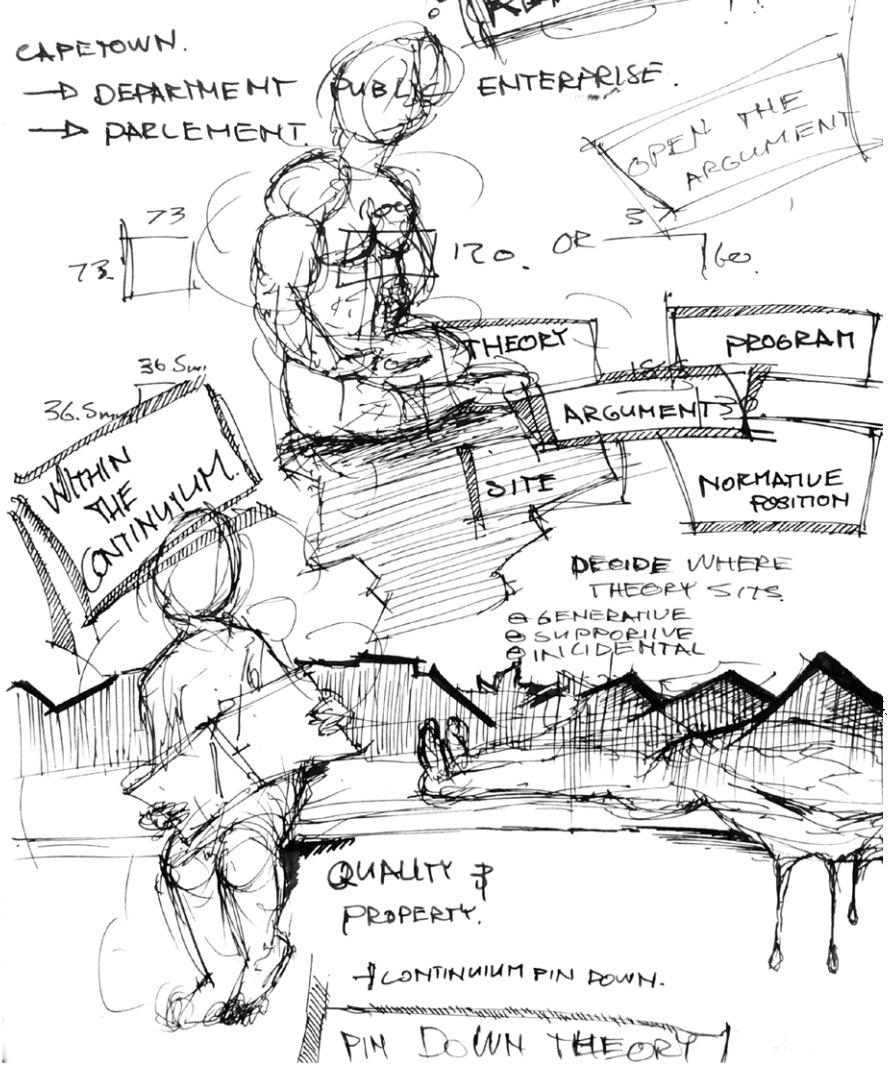 CAPETOWN.
→ DEPARTMENT PUBLIC ENTERPRISE.
→ PARLEMENT.
OPEN THE
ARGUMENT
73
73
120. OR
60.
THEORY
PROGRAM
36.5mm
36.5mm
ARGUMENT
WITHIN
THE
CONTINUIUM.
SITE
NORMATIVE
POSITION
DECIDE WHERE
THEORY SITS
GENERATIVE
SUPPORTIVE
INCIDENTAL
QUALITY &
PROPERTY.
CONTINUIUM PIN DOWN.
PIN DOWN THEORY